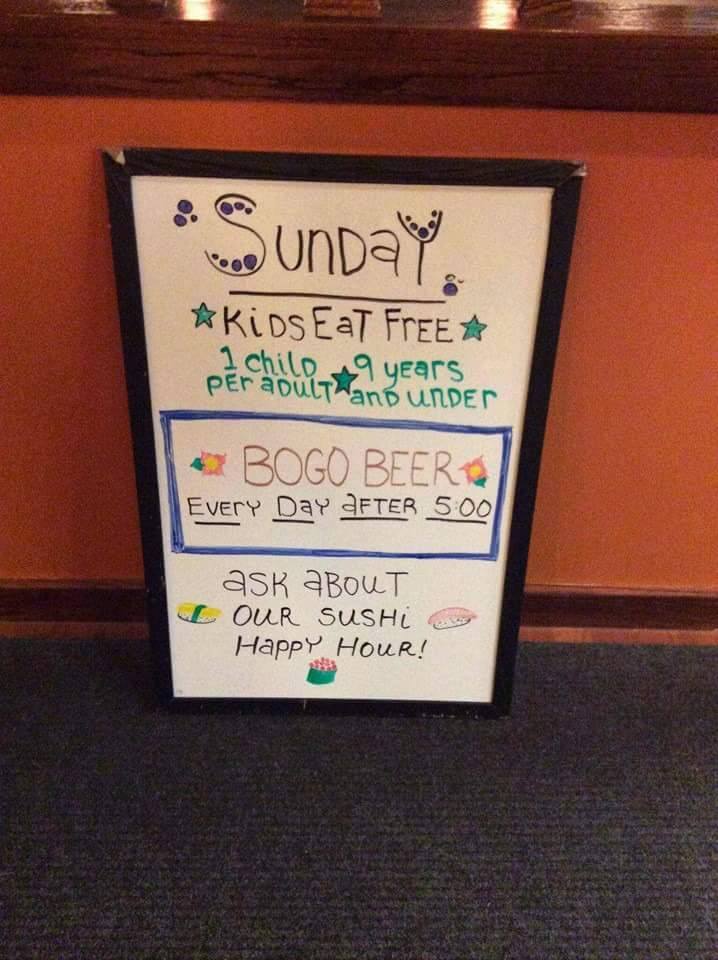 SunDaY
KiDS EaT FrEE
1 chilD 9 years
pEr aDulT anD unDEr
BOGO BEER
EVErY DaY aFTER 5:00
aSK aBOuT
OUR SUSHi
HaPPY HOUR!